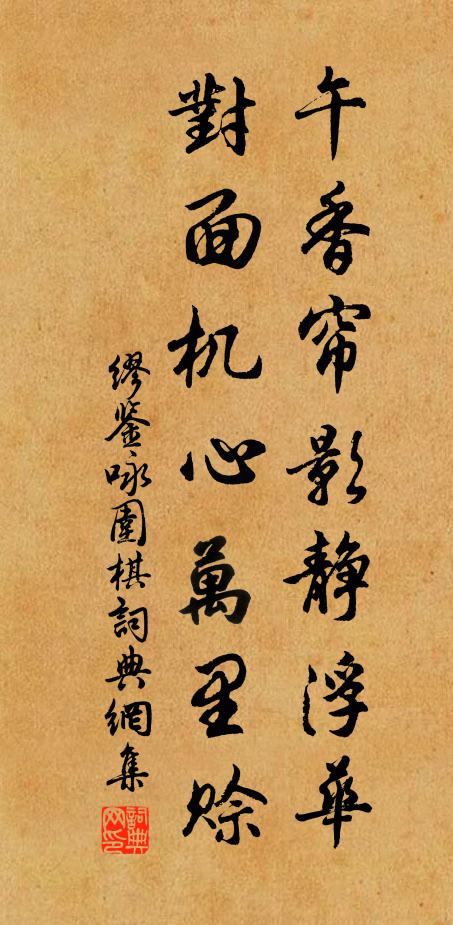 午香帘影静浮華
對面机心萬里賒
繆鉴咏圍棋詞典網集
詞典网印